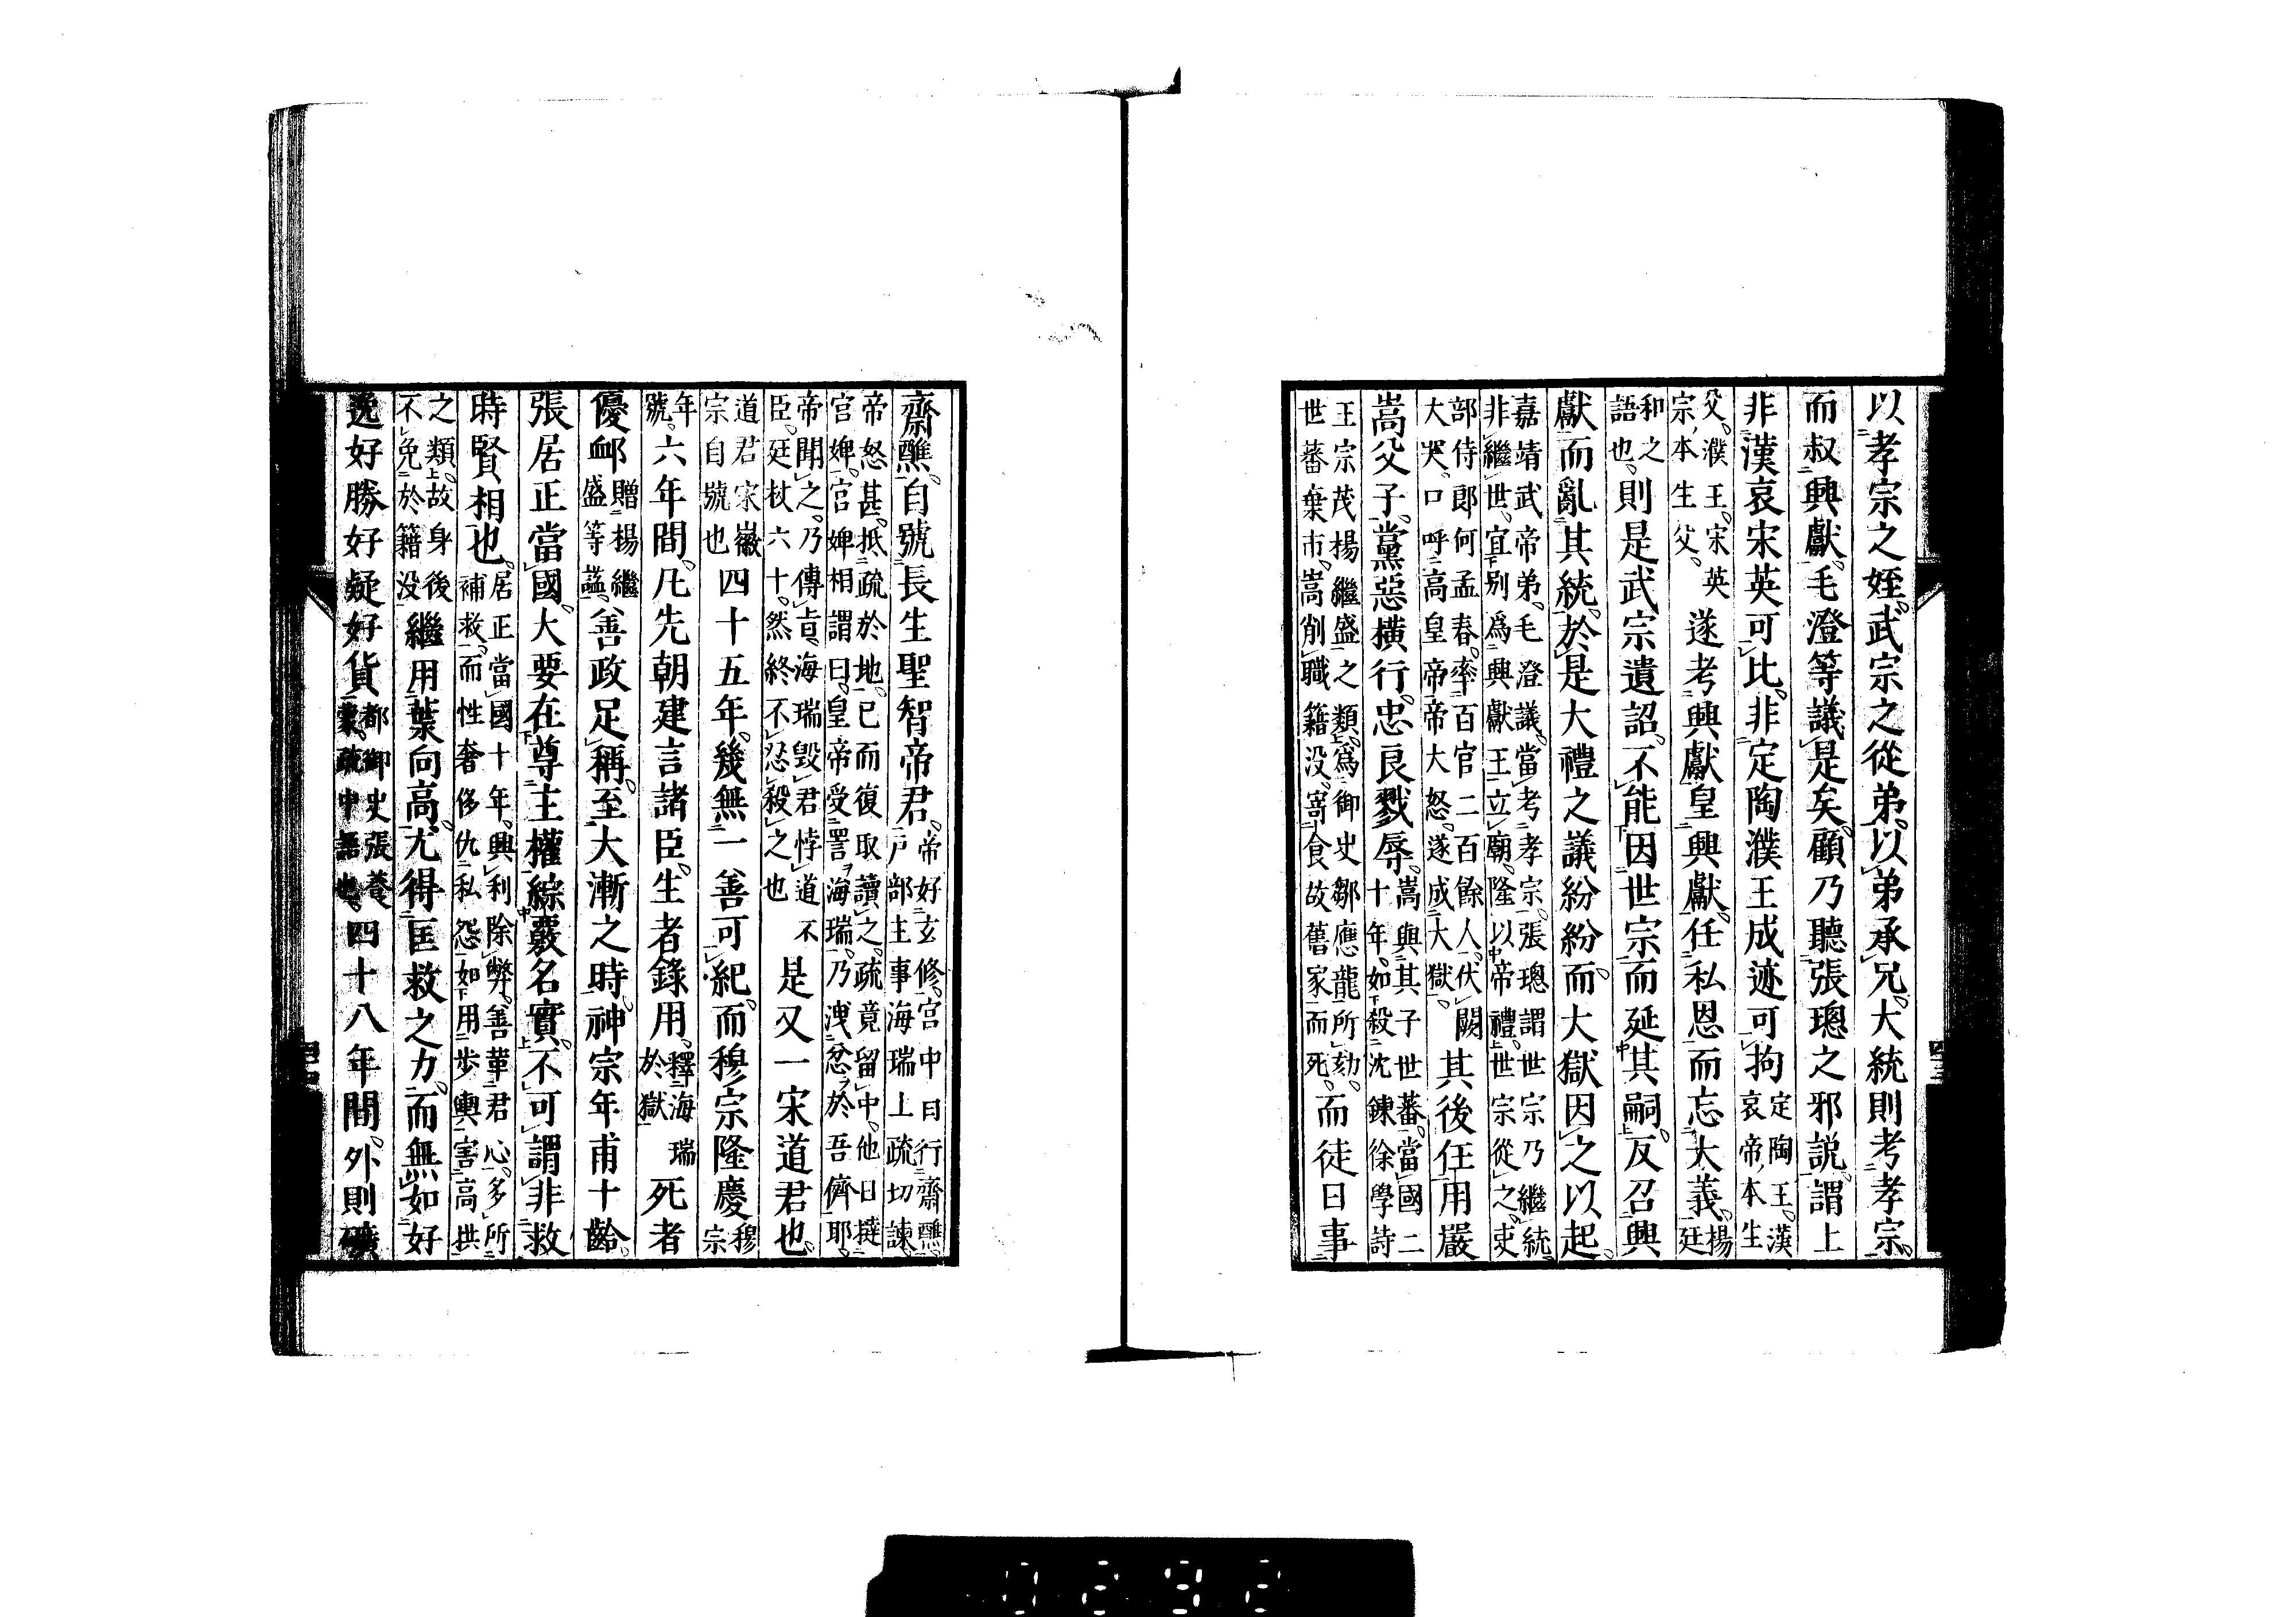 以孝宗之姪武宗之從弟。以弟承兄。大統則考孝宗。
而叔興獻。毛澄等議是矣。顧乃聽張璁之邪説。謂上
非漢哀宋英可比。非定陶濮王成迹可拘定陶王。漢哀帝本生
父。濮王。宋英宗本生父。遂考興獻皇興獻。任私恩而忘大義。楊廷
和之語也。則是武宗遺詔。不能因世宗而延其嗣。反召興
獻而亂其統。於是大禮之議紛紛。而大獄因之以起。
嘉靖武帝弟。毛澄議。當考孝宗。張璁謂世宗乃繼統。非繼世。宜別爲興獻王立廟。隆以帝禮。世宗從之。吏
部侍郎何孟春。率百官二百餘人。伏闕大哭。口呼高皇帝。帝大怒。遂成大獄。其後任用嚴
嵩父子。黨惡橫行。忠良戮辱。嵩與其子世蕃。當國二十年。如殺沈鍊徐學詩
王宗茂楊繼盛之類。爲御史鄒應龍所劾。世蕃棄市。嵩削職籍没。寄食故舊家而死。而徒日事
四三
齋醮。自號長生聖智帝君。帝好玄修。宮中日行齋醮。戸部主事海瑞上疏切諫。
帝怒甚。抵疏於地。已而復取讀之。疏竟留中。他日撻宮婢。宮婢相謂曰。皇帝受詈海瑞。乃洩忿於吾儕耶。
帝聞之。乃傳旨。海瑞毀君悖道不臣。廷杖六十。然終不忍殺之也 是又一宋道君也。
道君宋徽宗自號也 四十五年。幾無一善可紀。而穆宗隆慶穆宗
年號。六年間。凡先朝建言諸臣。生者錄用。釋海瑞於獄 死者
優卹贈楊繼盛等諡。善政足稱。至大漸之時。神宗年甫十齡。
張居正當國。大要在尊主權綜覈名實。不可謂非救
時賢相也。居正當國十年。興利除弊。善革君心。多所補救。而性奢侈仇私怨。如用歩輿害高拱
之類。故身後不免於籍没 繼用葉向高。尤得匡救之力。而無如好
逸好勝好疑好貨都御史張養蒙。疏中語也。四十八年間。外則礦